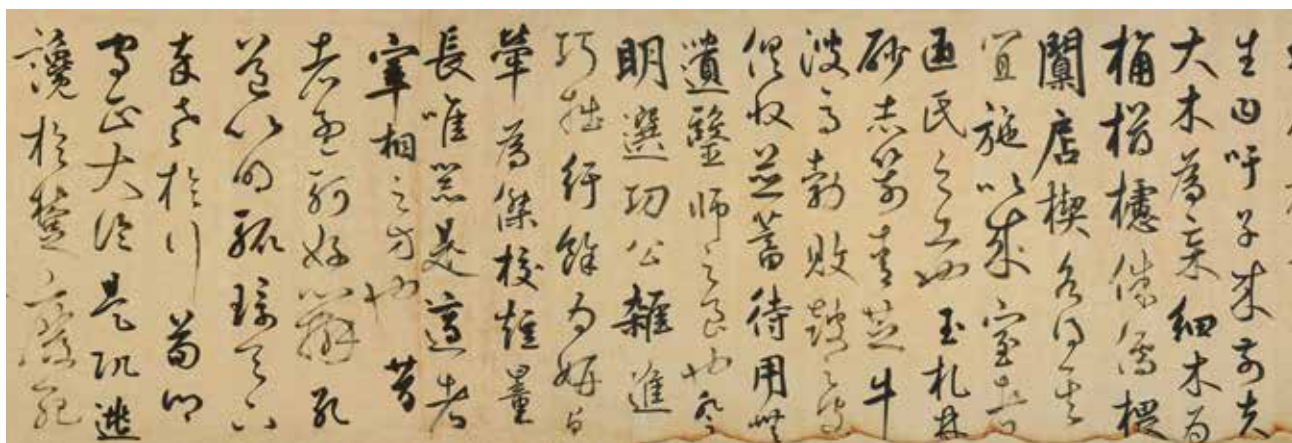 生曰吁子來前夫
大木為杗細木為
桷欂櫨侏儒椳
闑扂楔各得其
宜施以成室者
匠氏之工也玉札丹
砂赤箭青芝牛
溲馬勃敗鼓之皮
俱收並蓄待用無
遺醫師之良也登
明選功公雜進
巧拙紆餘為妍卓
犖為傑校短量
長唯器是適者
宰相之方也昔
者孟軻好辯孔
道以明轍環天下
卒老於行荀卿
守正大論是弘逃
讒於楚廢死